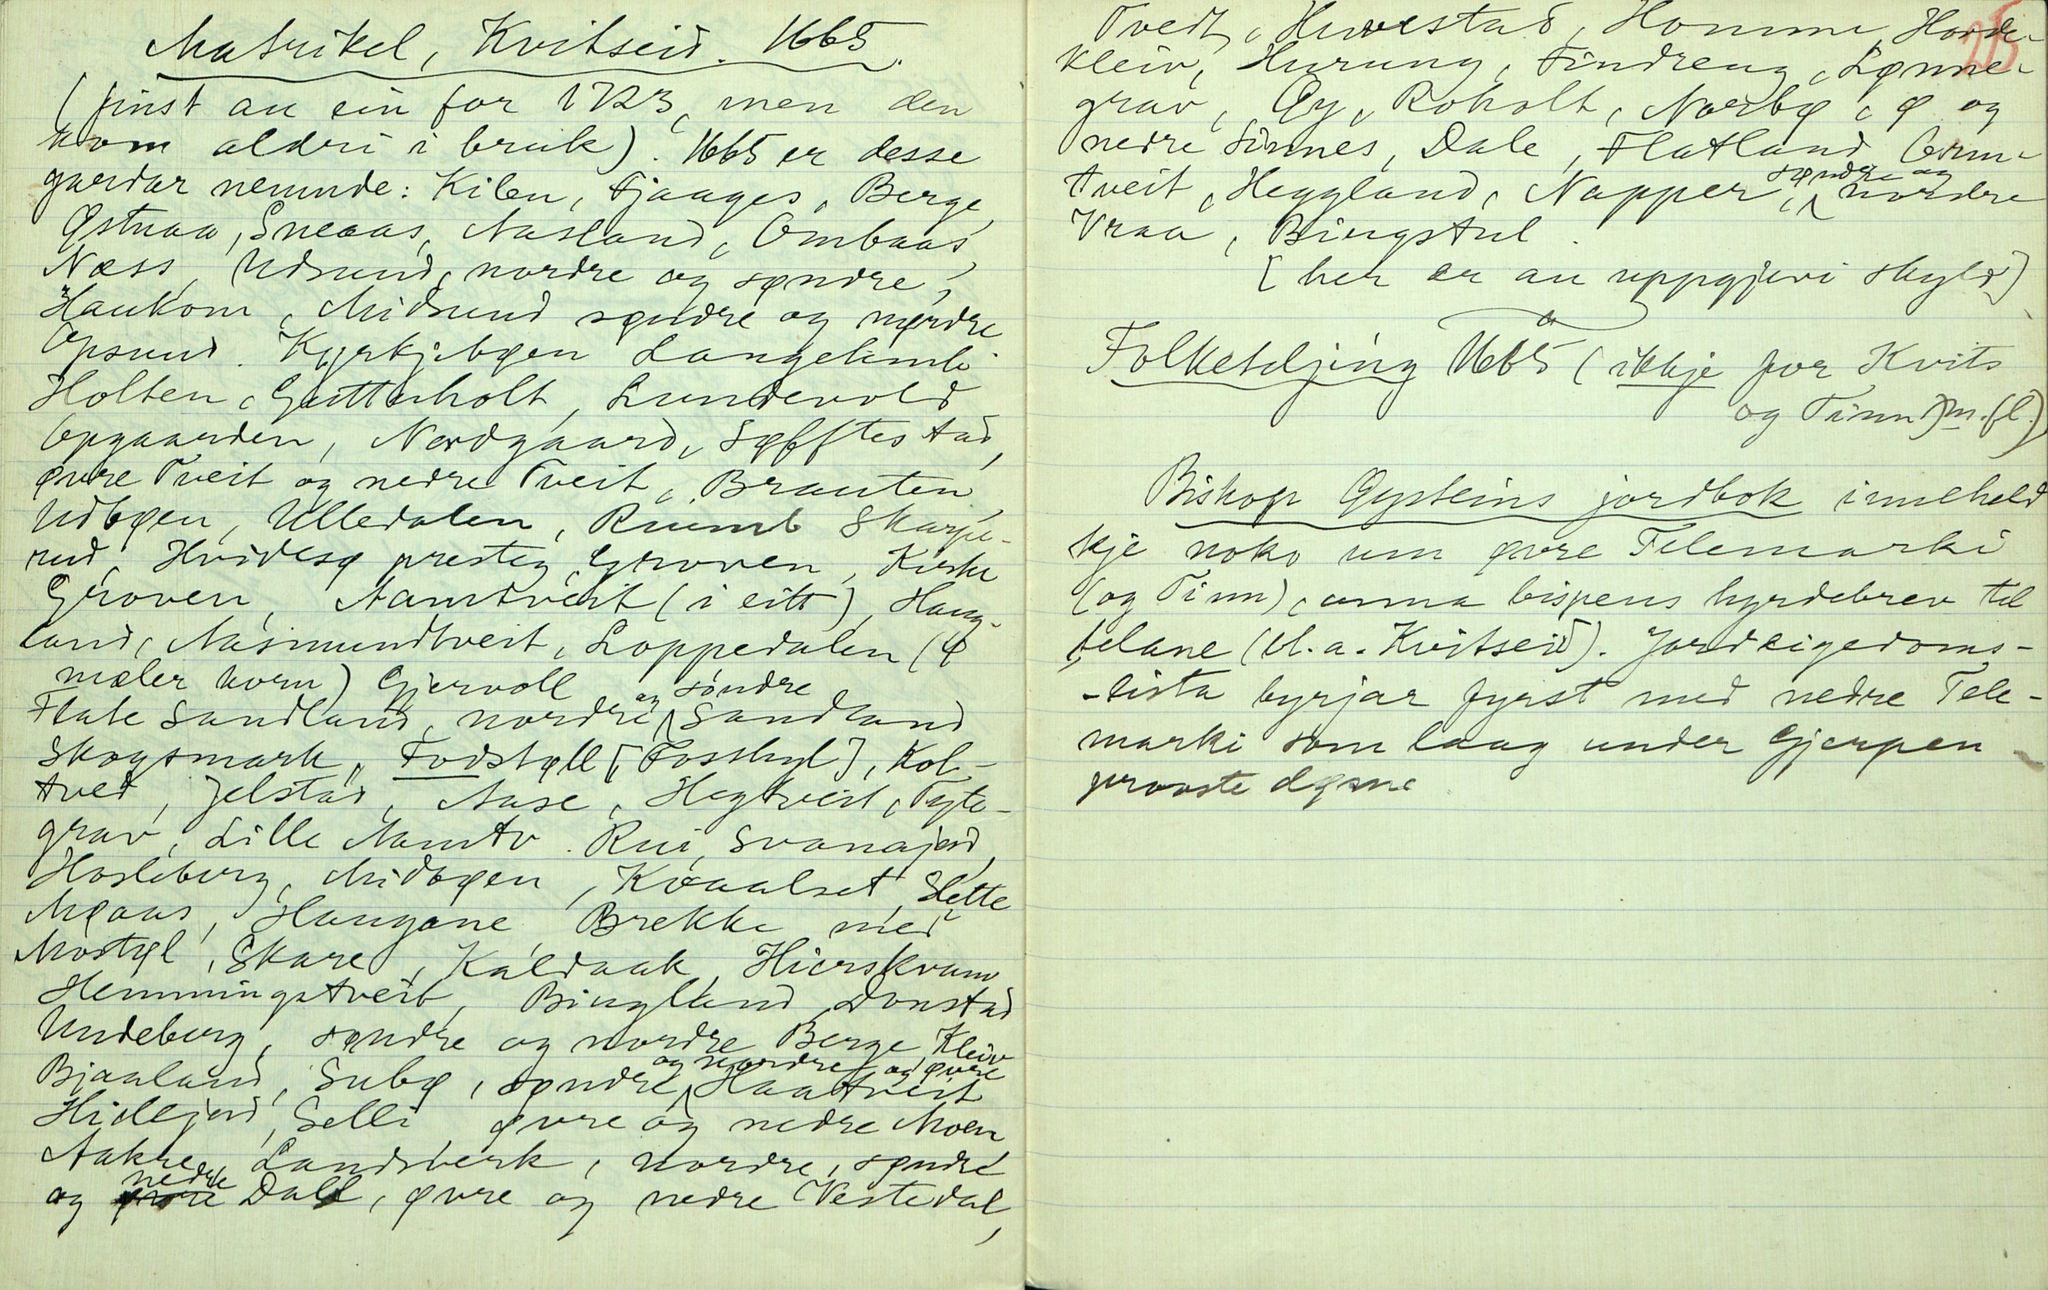 Matrikel, Kvitseid. 1665.
(finst au ein for 1723, men den
kom aldri i bruk). 1665 er desse
gardar nemnde: Kilen, Fjaages, Berge,
Østnaa, Sneaas, Aasland, Ombaas,
Næss, Udsund, nordre og søndre,
Haukom, Midsund søndre og nørdre
Opsund. Kyrkjebøen Langelimli
Holten, Guttuholt, Lundevold
Opgaarden, Nordgaard, Søfftestad,
øvre Tveit og nedre Tveit, Brauten,
Udbøen, Ulledalen, Ruumb Skarpe-
rud, Hvidesø presteg, Groven, Kirke
Groven, Aamtveit (i eitt), Haug-
land, Aasmundtveit, Loppedalen (4
mæler korn) Gjervoll
Flate Sandland, nordre og søndre Sandland
Skogsmark, Fodstøll [Fosstyl], Kol-
tved, Jelstad, Aase, Hegtveit, Tyte-
grav, Lille Aamtv. Rui, Svanajord,
Hasleberg, Midbøen, Kvaalset, Slette
Moaas, Haugane Brekke med
Mostyl, Skare, Kaldaak, Hierskvam
Hemmingstveit, Bingland Donstad
Undeberg, søndre og nordre Berge, Kleiv
Bjaaland, Subø, søndre og nordre og øvre Haatveit
Hidlejord, Selli øvre og nedre Moen
Aakre, Landsverk, nordre, søndre
og nedre Dall, øvre og nedre Vestedal,
215
Tvedt, Huvestad, Homme, Horde-
kleiv, Hurung, Findreng, Lønne-
grav, Øy, Roholt, Nordbø, ø og
nedre Sinnes, Dale, Flatland Orm-
tveit, Heggland, Napper, søndre og nordre
Vraa, Bingstul.
[her er au uppgjevi skyld]
Folketeljing 1665 (ikkje for Kvits
og Tinn) m. fl.)
Biskop Øysteins jordbok inneheld
kje noko um øvre Telemarki
(og Tinn), anna bispens hyrdebrev til
telane (bl. a. Kvitseid). Jordeigedoms-
-lista byrjar fyrst med nedre Tele-
marki som laag under Gjerpen
provstedøme